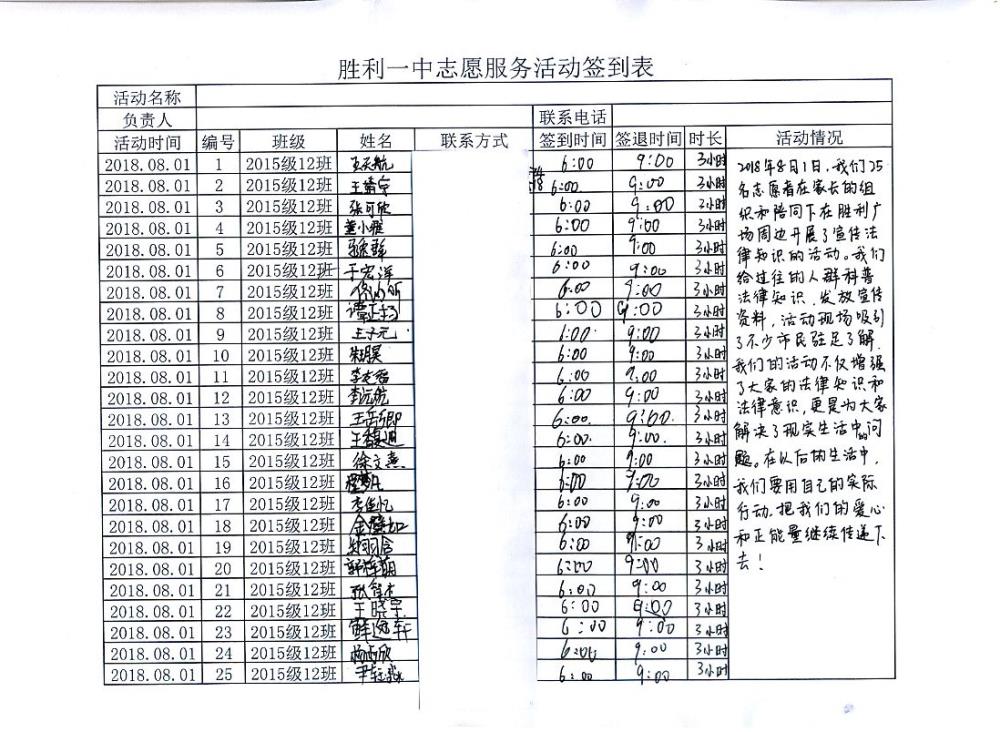 胜利一中志愿服务活动签到表
活动名称
负责人 联系电话
活动时间 编号 班级 姓名 联系方式 签到时间 签退时间 时长 活动情况
2018.08.01 1 2015级12班 6:00 9:00 3小时
2018.08.01 2 2015级12班 王靖宇 6:00 9:00 3小时
2018.08.01 3 2015级12班 张可欣 6:00 9:00 3小时
2018.08.01 4 2015级12班 董小雅 6:00 9:00 3小时
2018.08.01 5 2015级12班 6:00 9:00 3小时
2018.08.01 6 2015级12班 于宏洋 6:00 9:00 3小时
2018.08.01 7 2015级12班 6:00 9:00 3小时
2018.08.01 8 2015级12班 6:00 9:00 3小时
2018.08.01 9 2015级12班 王子元 6:00 9:00 3小时
2018.08.01 10 2015级12班 6:00 9:00 3小时
2018.08.01 11 2015级12班 6:00 9:00 3小时
2018.08.01 12 2015级12班 6:00 9:00 3小时
2018.08.01 13 2015级12班 王岳卿 6:00 9:00 3小时
2018.08.01 14 2015级12班 6:00 9:00 3小时
2018.08.01 15 2015级12班 徐文熹 6:00 9:00 3小时
2018.08.01 16 2015级12班 6:00 9:00 3小时
2018.08.01 17 2015级12班 李佳忆 6:00 9:00 3小时
2018.08.01 18 2015级12班 6:00 9:00 3小时
2018.08.01 19 2015级12班 6:00 9:00 3小时
2018.08.01 20 2015级12班 6:00 9:00 3小时
2018.08.01 21 2015级12班 6:00 9:00 3小时
2018.08.01 22 2015级12班 王晓宇 6:00 9:00 3小时
2018.08.01 23 2015级12班 6:00 9:00 3小时
2018.08.01 24 2015级12班 6:00 9:00 3小时
2018.08.01 25 2015级12班 6:00 9:00 3小时
2018年8月1日,我们25
名志愿者在家长的组
织和陪同下在胜利广
场周边开展了宣传法
律知识的活动。我们
给过往的人群科普
法律知识,发放宣传
资料,活动现场吸引
了不少市民驻足了解.
我们的活动不仅增强
了大家的法律知识和
法律意识,更是为大家
解决了现实生活中的问
题。在以后的生活中,
我们要用自己的实际
行动,把我们的爱心
和正能量继续传递下
去!